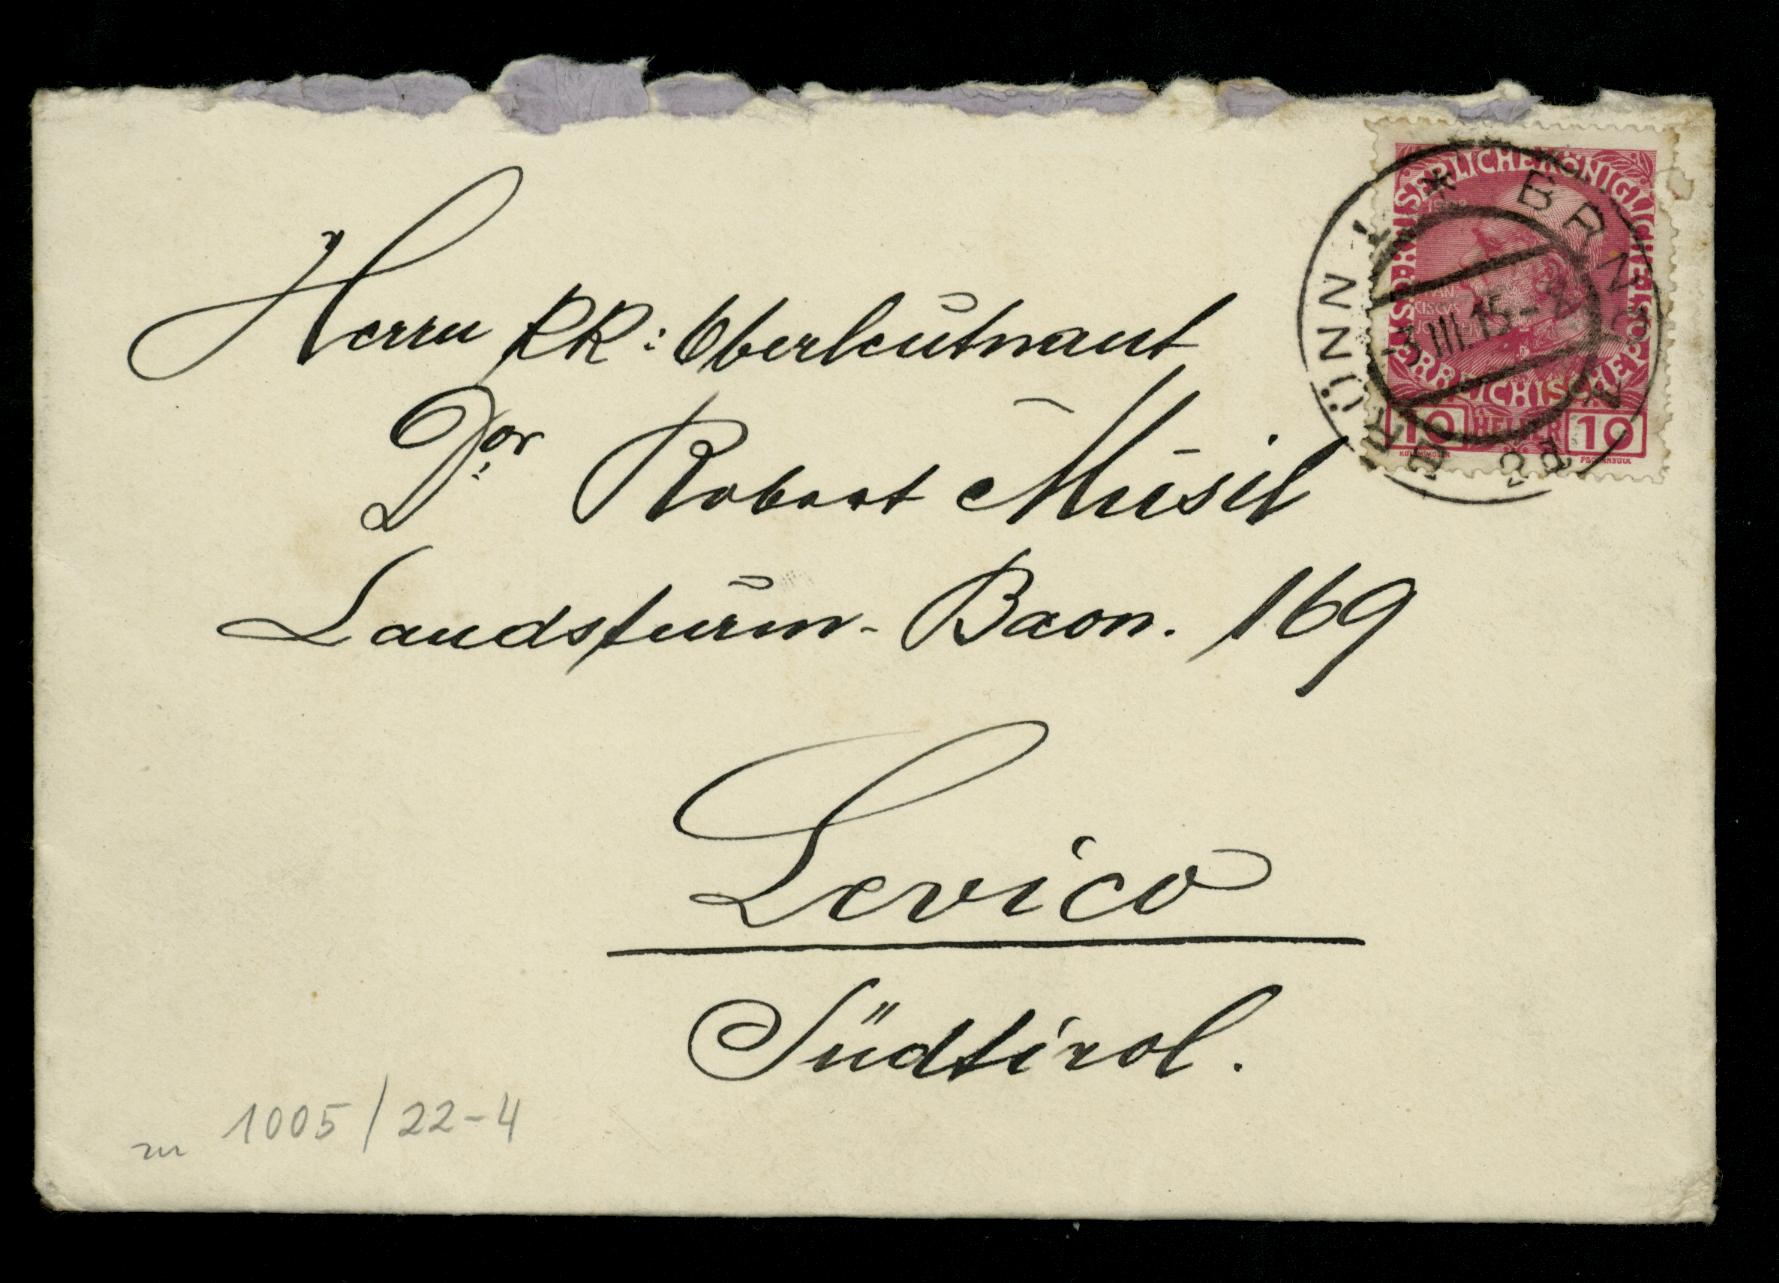 KAISERLICHE KÖNIGLICHE ÖSTERREICHISCHE POST
10 HELLER 10
BRÜNN 1 * BRNO
-3.III.15-
Herrn KK: Oberleutnant
Dor Robert Musil
Landsturm-Baon. 169
Levico
Südtirol.
zu 1005/22-4